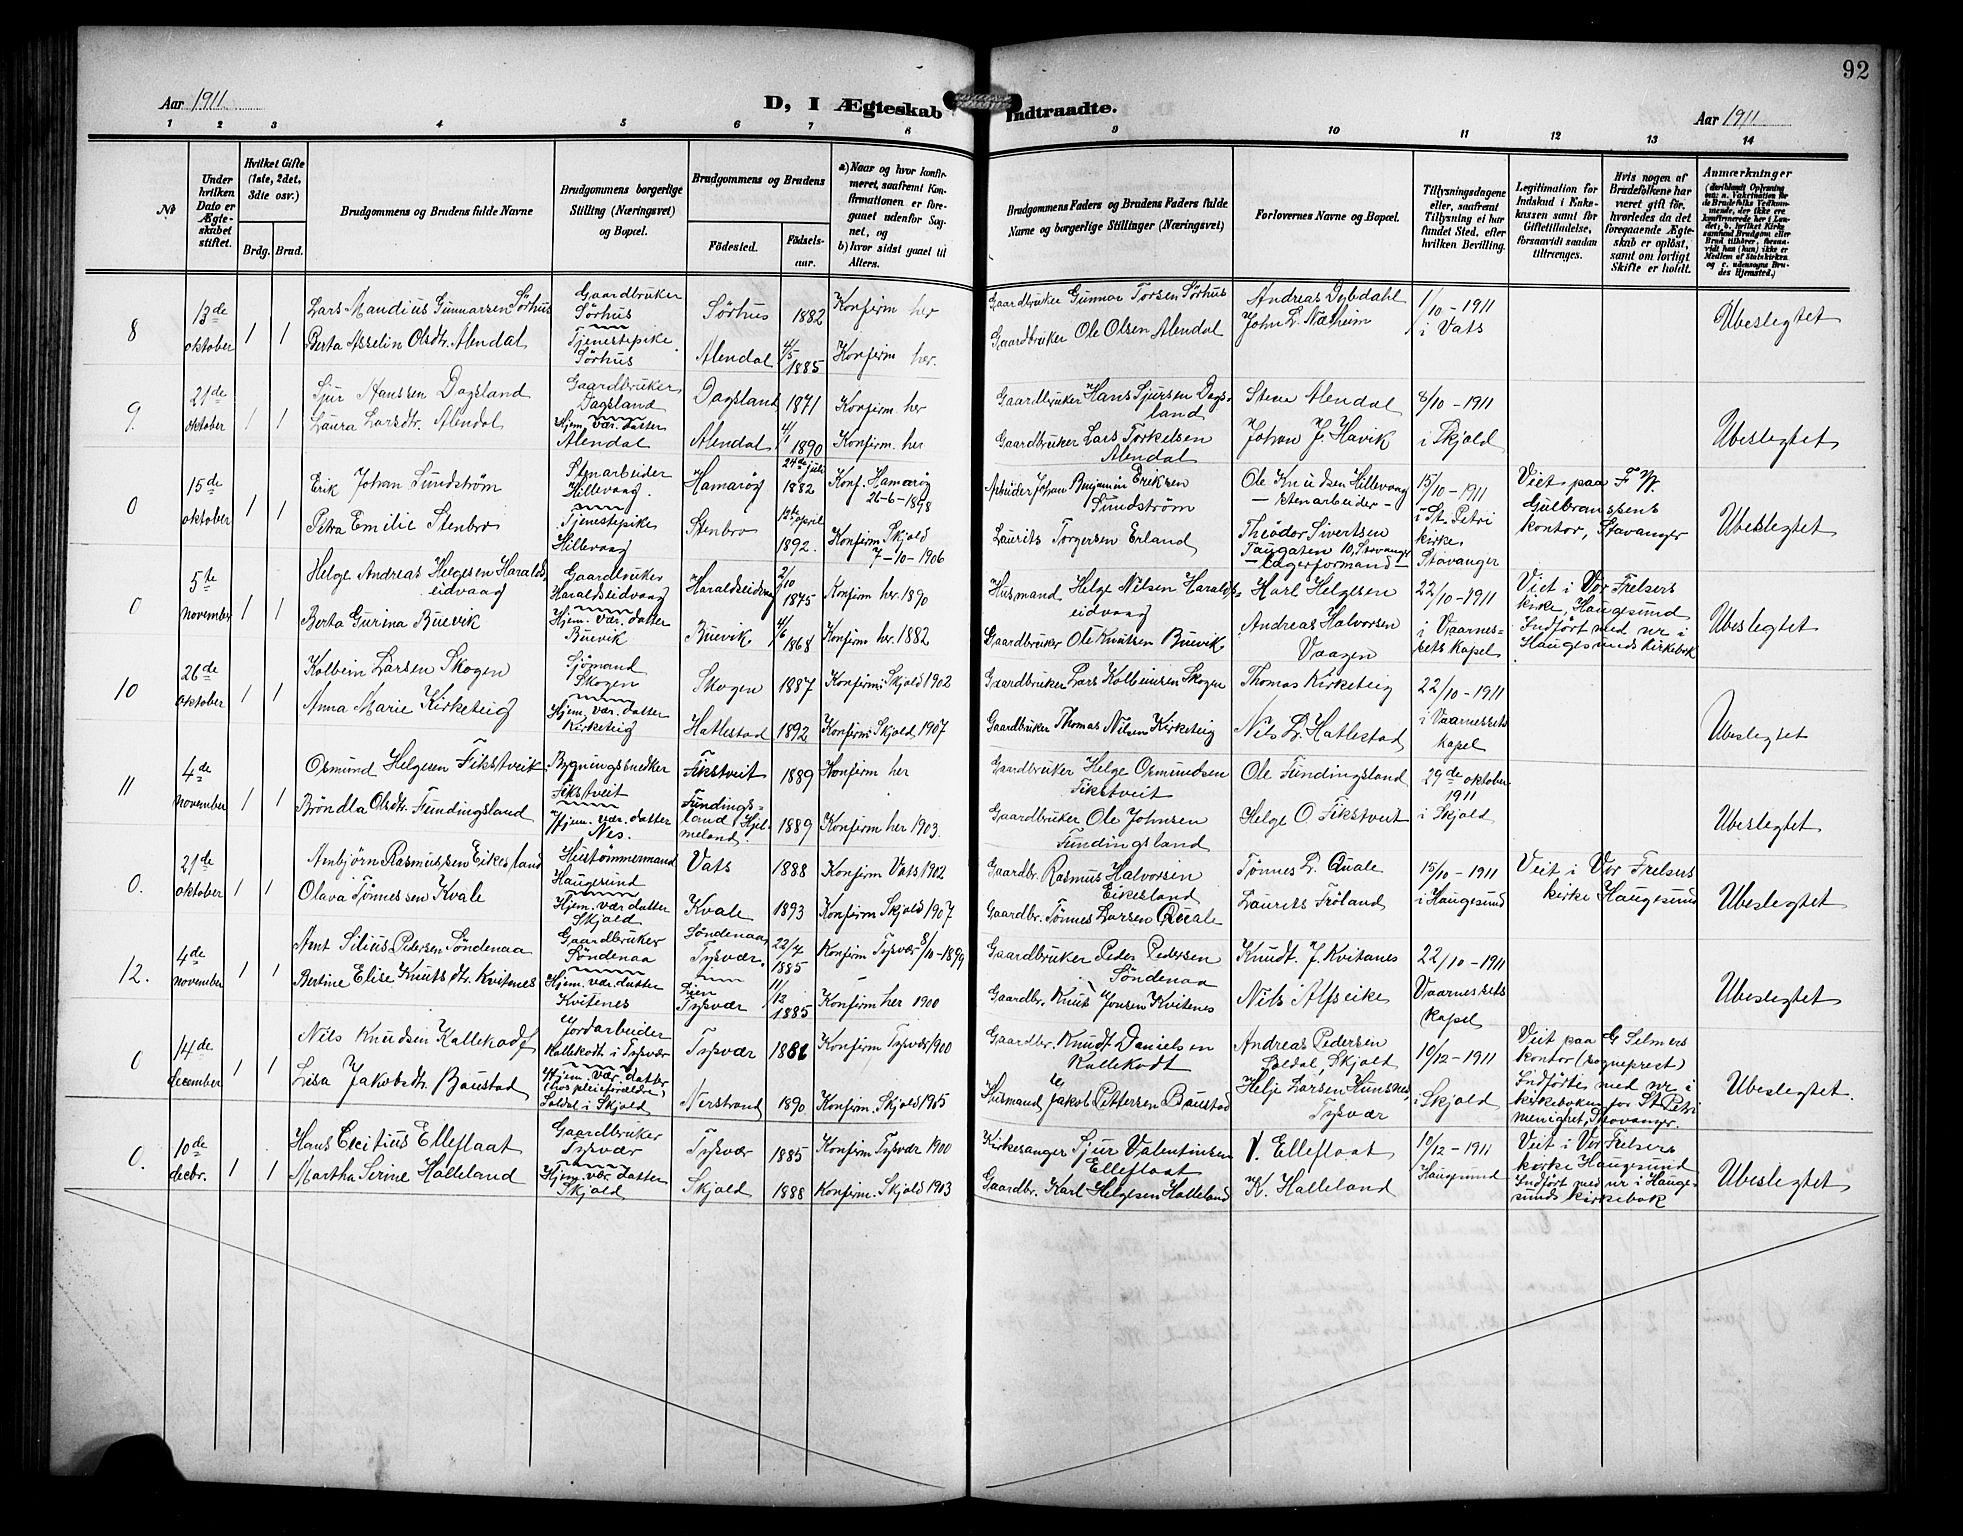 92
Aar 1911
D, I Ægteskab Indtraadte.
Aar 1911
1 2 3 4 5 6 7 8 9 10 11 12 13 14
№
Under hvilken Dato er Ægteskabet stiftet.
Hvilket Gifte (1ste, 2det, 3die osv.)
Brdg. Brud.
Brudgommens og Brudens fulde Navne
Brudgommens borgerlige Stilling (Næringsvei) og Bopæl.
Brudgommens og Brudens
Fødested.
Fødselsaar.
a) Naar og hvor konfirmeret, saafremt Konfirmationen er foregaaet udenfor Sognet, og
b) hvor sidst gaaet til Alters.
Brudgommens Faders og Brudens Faders fulde Navne og borgerlige Stillinger (Næringsvei)
Forlovernes Navne og Bopæl.
Tillysningsdagene eller, saafremt Tillysning ei har fundet Sted, efter hvilken Bevilling.
Legitimation for Indskud i Enkekassen samt for Giftetilladelse, forsaavidt saadan tiltrænges.
Hvis nogen af Brudefolkene har været gift før, hvorledes da det foregaaende Ægteskab er opløst, samt om lovligt Skifte er holdt.
Anmærkninger
8 13de oktober 1 1
Lars Mandius Gunnarsen Sørhus
Gaardbruker Sørhus
Sørhus 1882 Konfirm her
Gaardbruker Gunnar Torsen Sørhus
Andreas Dybdahl
1/10-1911 i Vats
Ubeslegtet
Berta Asselin Olsdtr. Alendal
Tjenestepike Sørhus
Alendal 4/5 1885 Konfirm her.
Gaardbruker Ole Olsen Alendal
John L. Nætheim
9. 21de oktober 1 1
Sjur Hanssen Dagsland
Gaardbruker Dagsland
Dagsland 1871 Konfirm her
Gaardbruker Hans Sjursen Dagsland
Stene Alendal
8/10-1911 i Skjold
Ubeslegtet
Laura Larsdtr. Alendal
Hjem. vær. datter Alendal
Alendal 4/1 1890 Konfirm. her
Gaardbruker Lars Torkelsen Alendal
Johan J. Havik
0 15de oktober 1 1
Erik Johan Sundström
Stenarbeider Hillevaag.
Hamarøg 24de juli 1882 Konf. Hamarøg 26-6-1898
Arbeider Johan Benjamin Eriksen Sundström
Ole Knudsen Hillevaag - stenarbeider -
15/10-1911 i St. Petri kirke Stavanger
Viet paa F. W. Gulbransens kontor, Stavanger
Ubeslegtet
Petra Emilie Stenbro
Tjenestepike Hillevaag
Stenbro 12te april 1892. Konfirm Skjold 7-10-1906
Laurits Torgersen Erland
Theodor Sivertsen Taugaten 10, Stavanger - lagerformand -
0 5te november 1 1
Helge Andreas Helgesen Haraldseidvaag
Gaardbruker Haraldseidvaag
Haraldseidvaag 2/10 1875 Konfirm her. 1890
Husmand Helge Nilsen Haraldseidvaag
Karl Helgesen
22/10-1911 i Vaarnessets Kapel
Viet i Vor Frelsers kirke, Haugesund Indført med nr i Haugesunds kirkebok
Ubeslegtet
Berta Gurina Buevik
Hjem. vær. datter Buevik
Buevik 4/6 1868 Konfirm her. 1882
Gaardbruker Ole Knutsen Buevik
Andreas Halvorsen Vaagen
10 26de oktober 1 1
Kolbein Larsen Skogen
Sjømand Skogen
Skogen 1887 Konfirm. Skjold 1902
Gaardbruker Lars Kolbeinsen Skogen
Thomas Kirketeig
22/10-1911 i Vaarnessets kapel
Ubeslegtet
Anna Marie Kirketeig
Hjem. vær. datter Kirketeig
Hatlestad 1892 Konfirm: Skjold 1907
Gaardbruker Thomas Nilsen Kirketeig
Nils L. Hatlestad
11 4de november 1 1
Osmund Helgesen Fikstveit
Bygningssnedker Fikstveit
Fikstveit 1889 Konfirm her
Gaardbruker Helge Osmundsen Fikstveit
Ole Fundingsland
29de oktober 1911 i Skjold
Ubeslegtet
Bröndla Olsdtr. Fundingsland
Hjem. vær. datter Nes.
Fundingsland i Hjelmeland 1889 Konfirm her 1903.
Gaardbruker Ole Johnsen Fundingsland
Helge O Fikstveit
0. 21de oktober 1 1
Arnbjørn Rasmussen Eikesland
Hustømmermand Haugesund
Vats 1888 Konfirm Vats 1902
Gaardbr. Rasmus Halvorsen Eikesland
Tønnes L. Quale
15/10-1911 i Haugesund
Veit i Vor Frelsers kirke Haugesund
Ubeslegtet
Olava Tønnessen Kvale
Hjem. vær datter Skjold
Kvale 1893 Konfirm Skjold 1907
Gaardbr. Tønnes Larsen Quale
Laurits Fröland
12. 4de november 1 1
Arnt Silius Pedersen Söndenaa
Gaardbruker Söndenaa
Söndenaa Tysvær 22/4 1885 Konfirm Tysvær 8/10-1899
Gaardbruker Peder Pedersen Söndenaa
Knudt. J. Kvitanes
22/10-1911 Vaarnessets kapel
Ubeslegtet
Bertine Elise Knutsdtr. Kvitenes
Hjem. vær. datter Kvitenes
Lien Tysvær 11/12 1885 Konfirm her 1900
Gaardbr. Knut Jonsen Kvitenes
Nils Alfseike
0 14de december 1 1
Nils Knudsen Kallekodt
Jordarbeider Kallekodt i Tysvær
Tysvær Konfirm Tysvær 1900
Gaardbr. Knudt Danielsen Kallekodt
Andreas Pedersen Soldal, Skjold
10/12-1911 i Skjold
Veit paa G Selmers kontor (sogneprest) Indførtes med nr i kirkeboken for St Petri menighet, Stavanger.
Ubeslegtet.
Lisa Jakobsdtr. Baustad
Hjem. vær. datter (hos pleieforældre) Soldal i Skjold
Nerstrand 1890 Konfirm. Skjold 1905
Husmand Jakob Pettersen Baustad
Helje Larsen Hunsnes, Tysvær
0. 10de decbr. 1 1
Hans Cecitius Elleflaat
Gaardbruker Tysvær
Tysvær 1885 Konfirm Tysvær 1900
Kirkesanger Sjur Valentinsen Elleflaat
V. Elleflaat
10/12-1911 Haugesund
Veit i Vor Frelsers kirke Haugesund Indført med nr i Haugesunds kirkebok
Ubeslegtet
Martha Serine Halleland
Hjem. vær. datter Skjold
Skjold 1888 Konfirm. Skjold 1903
Gaardbr. Karl Helgesen Halleland
K. Halleland